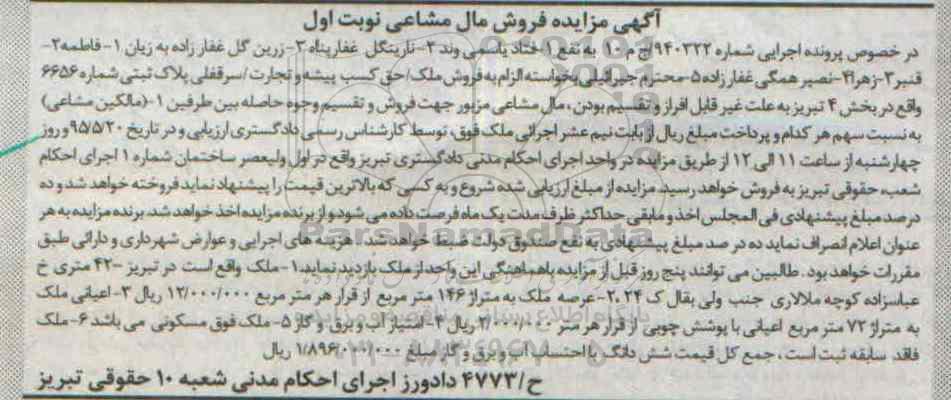 آگهی مزایده فروش مال مشاعی نوبت اول
در خصوص پرونده اجرایی شماره ۹۴۰۳۲۲/ج م ۱۰ به نفع ۱- یاسمی وند ۲-نارینگل غفارپناه ۳-زرین گل غفار زاده به زیان ۱-فاطمه۲-
قنبر۳-زهرا۴-نصیر همگی غفارزاده۵-محترم جبرائیلی بخواسته الزام به فروش ملک/حق کسب پیشه و تجارت/سرقفلی پلاک ثبتی شماره ۶۶۵۶
واقع در بخش ۴ تبریز به علت غیر قابل افراز و تقسیم بودن، مال مشاعی مزبور جهت فروش و تقسیم وجوه حاصله بین طرفین ۱-(مالکین مشاعی)
به نسبت سهم هر کدام و پرداخت مبلغ ریال از بابت نیم عشر اجرائی ملک فوق، توسط کارشناس رسمی دادگستری ارزیابی و در تاریخ ۹۵/۵/۲۰ و روز
چهارشنبه از ساعت ۱۱ الی ۱۲ از طریق مزایده در واحد اجرای احکام مدنی دادگستری تبریز واقع در اول ولیعصر ساختمان شماره ۱ اجرای احکام
شعب، حقوقی تبریز به فروش خواهد رسید. مزایده از مبلغ ارزیابی شده شروع و به کسی که بالاترین قیمت را پیشنهاد نماید فروخته خواهد شد و ده
درصد مبلغ پیشنهادی فی المجلس اخذ و مابقی حداکثر ظرف مدت یک ماه فرصت داده می شود و از برنده مزایده اخذ خواهد شد. برنده مزایده به هر
عنوان اعلام انصراف نماید ده در صد مبلغ پیشنهادی به نفع صندوق دولت ضبط خواهد شد. هزینه های اجرایی و عوارض شهرداری و دارائی طبق
مقررات خواهد بود. طالبین می توانند پنج روز قبل از مزایده باهماهنگی این واحد از ملک بازدید نمایند.۱- ملک واقع است در تبریز -۴۲ متری خ
عباسزاده کوچه ملالاری جنب ولی بقال ک ۲۴.۲-عرصه ملک به متراژ ۱۴۶ متر مربع از قرار هر متر مربع ۱۲/۰۰۰/۰۰۰ ریال ۳-اعیانی ملک
به متراژ ۷۲ متر مربع اعیانی با پوشش چوبی از قرار هر متر ۲/۰۰۰/۰۰۰ ریال ۴-امتیاز آب و برق و گاز ۵- ملک فوق مسکونی می باشد ۶-ملک
فاقد سابقه ثبت است، جمع کل قیمت شش دانگ با احتساب اب و برق و گاز مبلغ ریال
ح/۴۷۷۳ دادورز اجرای احکام مدنی شعبه ۱۰ حقوقی تبریز
ParsNamadData